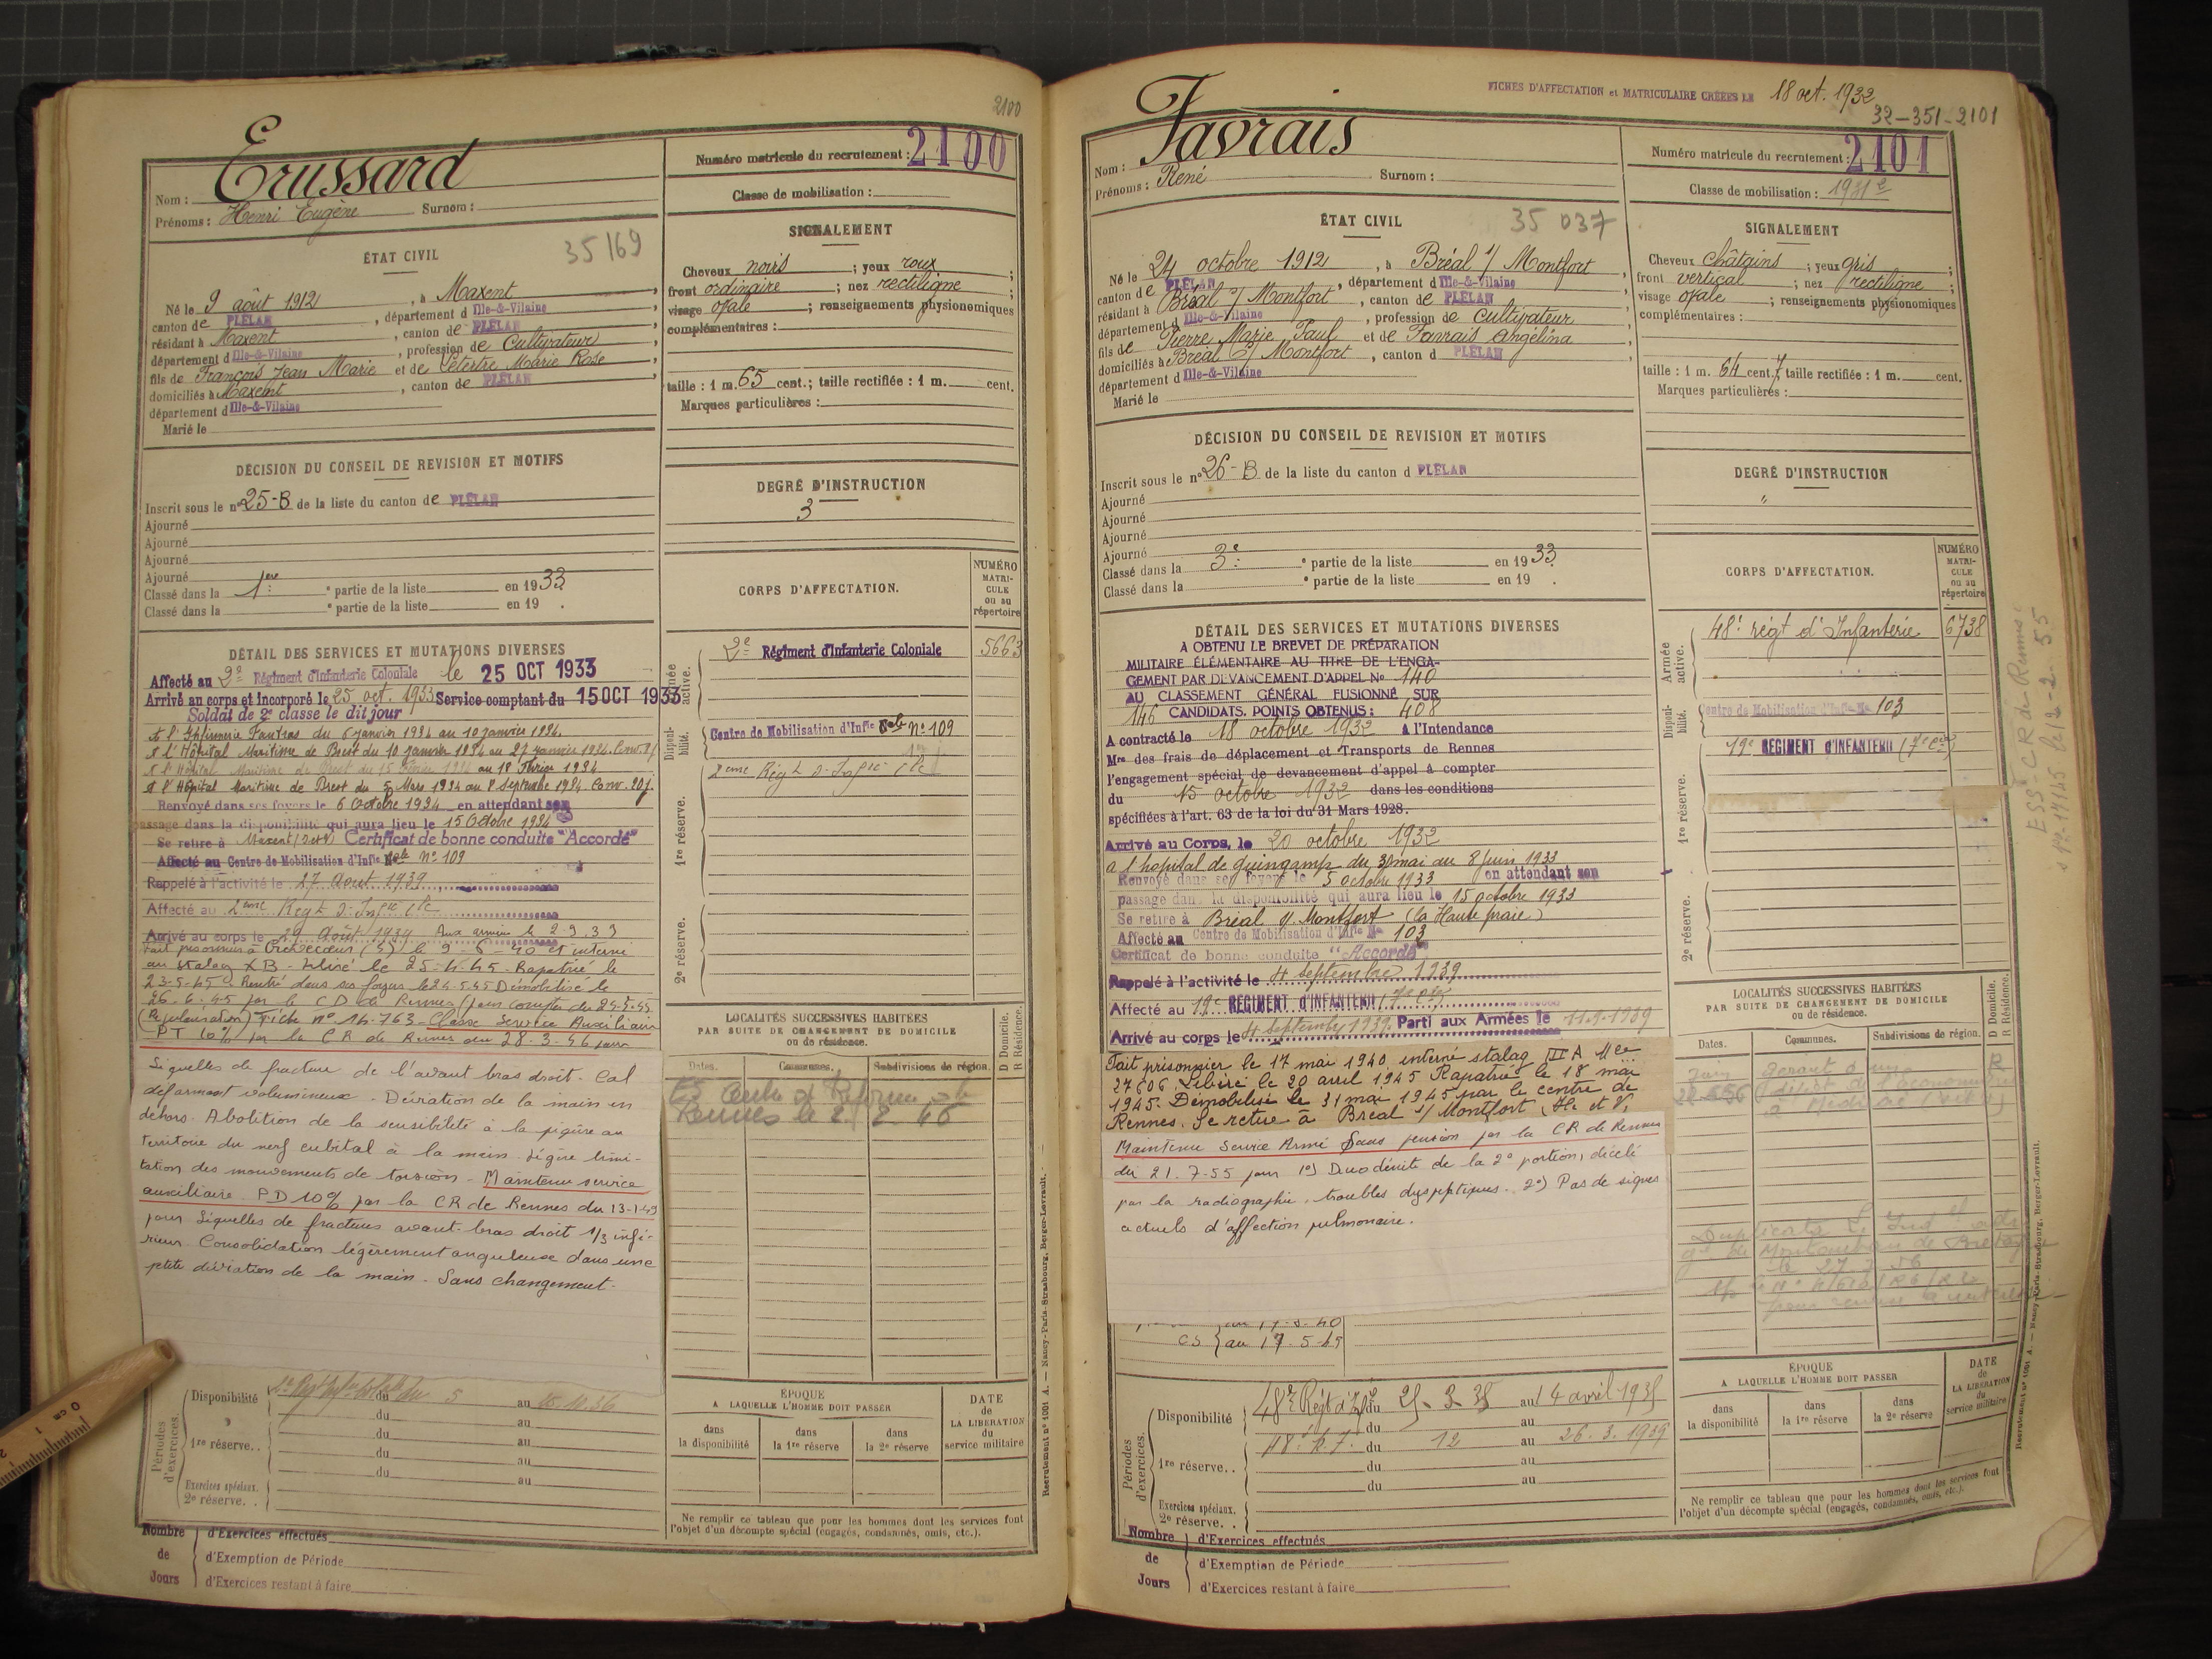 2100
Numéro matricule du recrutement : 2100
Nom : Erussard
Prénoms : Henri Eugène Surnom :
Classe de mobilisation :
ÉTAT CIVIL
35 169
Né le 9 août 1912, à Maxent,
canton de PLÉLAN, département d Ille-&-Vilaine
résidant à Maxent, canton de PLÉLAN
département d Ille-&-Vilaine, profession de Cultivateur
fils de François Jean Marie et de Letertre Marie Rose
domiciliés à Maxent, canton de PLÉLAN
département d Ille-&-Vilaine
Marié le
SIGNALEMENT
Cheveux noirs ; yeux roux ;
front ordinaire ; nez rectiligne ;
visage ovale ; renseignements physionomiques
complémentaires :
taille : 1 m. 65 cent.; taille rectifiée : 1 m. cent.
Marques particulières :
DÉCISION DU CONSEIL DE REVISION ET MOTIFS
Inscrit sous le n° 25-B de la liste du canton de PLÉLAN
Ajourné
Ajourné
Ajourné
Ajourné
Classé dans la 1ère partie de la liste en 1933
Classé dans la partie de la liste en 19 .
DEGRÉ D'INSTRUCTION
3
CORPS D'AFFECTATION.
NUMÉRO MATRICULE ou au répertoire
Armée active.
2e Régiment d'Infanterie Coloniale 5663
Disponibilité.
Centre de Mobilisation d'Infie Cale n° 109
2eme Régt d'Infie Cle
1re réserve.
2e réserve.
DÉTAIL DES SERVICES ET MUTATIONS DIVERSES
Affecté au 2e Régiment d'Infanterie Coloniale le 25 OCT 1933
Arrivé au corps et Incorporé le 25 oct. 1933 Service comptant du 15 OCT 1933
Soldat de 2e classe le dit jour
A l'Infirmerie Fautras du 6 janvier 1934 au 10 janvier 1934.
A l'Hôpital Maritime de Brest du 10 janvier 1934 au 27 janvier 1934.
A l'Hôpital Maritime de Brest du 15 Février 1934 au 18 Février 1934
A l'Hôpital Maritime de Brest du 5 Mars 1934 au 8 Septembre 1934. Conv. 20 j.
Renvoyé dans ses foyers le 6 Octobre 1934 en attendant son
passage dans la disponibilité qui aura lieu le 15 Octobre 1934
Se retire à Maxent (I et V) Certificat de bonne conduite "Accordé"
Affecté au Centre de Mobilisation d'Infie Cale N° 109
Rappelé à l'activité le 27 Août 1939
Affecté au 2eme Régt d'Infie Cle
Arrivé au corps le 29 Août 1939 Aux armées le 2.9.39
Fait prisonnier à Crèvecœur (S) le 9-6-40 et interné
au stalag XB - Libéré le 25-4-45 - Rapatrié le
23-5-45. Rentré dans ses foyers le 24.5.45 Démobilisé le
26-6-45 par le CD de Rennes
(Régularisation) Fiche n° 14.763 - Classé Service Auxiliaire
PT 10% par la CR de Rennes du 28-3-46 pour
Séquelles de fracture de l'avant bras droit. Cal
déformant volumineux - Déviation de la main en
dehors. Abolition de la sensibilité à la piqûre au
territoire du nerf cubital à la main. Légère limi-
tation des mouvements de torsion - Maintenu service
auxiliaire. PD 10% par la CR de Rennes du 13-1-49
pour Séquelles de fractures avant-bras droit 1/3 infé-
rieur. Consolidation légèrement anguleuse dans une
petite déviation de la main - Sans changement.
LOCALITÉS SUCCESSIVES HABITÉES
PAR SUITE DE CHANGEMENT DE DOMICILE
ou de résidence.
D Domicile. R Résidence.
Dates. Communes. Subdivisions de région.
ES Centre de Réforme de
Rennes le 2 46
Périodes d'exercices.
Disponibilité du 5 au 15.11.36
du au
1re réserve. . du au
du au
Exercices spéciaux. 2e réserve. . du au
ÉPOQUE
A LAQUELLE L'HOMME DOIT PASSER
dans la disponibilité
dans la 1re réserve
dans la 2e réserve
DATE de LA LIBÉRATION du service militaire
Ne remplir ce tableau que pour les hommes dont les services font
l'objet d'un décompte spécial (engagés, condamnés, omis, etc.).
Nombre de Jours
d'Exercices effectués
d'Exemption de Période
d'Exercices restant à faire
Recrutement n° 1001 A. — Nancy-Paris-Strasbourg, Berger-Levrault.
FICHES D'AFFECTATION et MATRICULAIRE CRÉÉES LE 18 oct. 1932
32-351-2101
Numéro matricule du recrutement : 2101
Nom : Favrais
Prénoms : René Surnom :
Classe de mobilisation : 1931e
ÉTAT CIVIL
35 037
Né le 24 octobre 1912, à Bréal s/ Montfort,
canton de PLÉLAN, département d Ille-&-Vilaine
résidant à Bréal s/ Montfort, canton de PLÉLAN
département d Ille-&-Vilaine, profession de Cultivateur
fils de Pierre Marie Paul et de Favrais Angélina
domiciliés à Bréal s/ Montfort, canton d PLÉLAN
département d Ille-&-Vilaine
Marié le
SIGNALEMENT
Cheveux châtains ; yeux gris ;
front vertical ; nez rectiligne ;
visage ovale ; renseignements physionomiques
complémentaires :
taille : 1 m. 64 cent. 7 taille rectifiée : 1 m. cent.
Marques particulières :
DÉCISION DU CONSEIL DE REVISION ET MOTIFS
Inscrit sous le n° 26-B de la liste du canton d PLÉLAN
Ajourné
Ajourné
Ajourné
Ajourné
Classé dans la 3e partie de la liste en 1933
Classé dans la partie de la liste en 19 .
DEGRÉ D'INSTRUCTION
"
CORPS D'AFFECTATION.
NUMÉRO MATRICULE ou au répertoire
Armée active.
48e régt d'Infanterie 6738
Disponibilité.
Centre de Mobilisation d'Infie No 103
19e REGIMENT d'INFANTERIE (7e Cie)
1re réserve.
2e réserve.
ESS CR de Rennes
DÉTAIL DES SERVICES ET MUTATIONS DIVERSES
A OBTENU LE BREVET DE PRÉPARATION
MILITAIRE ÉLÉMENTAIRE AU TITRE DE L'ENGA-
GEMENT PAR DEVANCEMENT D'APPEL No 140
AU CLASSEMENT GÉNÉRAL FUSIONNÉ SUR
146 CANDIDATS. POINTS OBTENUS : 408
A contracté le 18 octobre 1932 à l'Intendance
Mre des frais de déplacement et Transports de Rennes
l'engagement spécial de devancement d'appel à compter
du 15 octobre 1932 dans les conditions
spécifiées à l'art. 63 de la loi du 31 Mars 1928.
Arrivé au Corps, le 20 octobre 1932
A l'hopital de Guingamp du 30 mai au 8 Juin 1933
Renvoyé dans ses foyers le 5 octobre 1933 en attendant son
passage dans la disponibilité qui aura lieu le 15 octobre 1933
Se retire à Bréal s/ Montfort (la Haute praie)
Affecté au Centre de Mobilisation d'Infie No 103
Certificat de bonne conduite "Accordé"
Rappelé à l'activité le 4 septembre 1939
Affecté au 19e REGIMENT d'INFANTERIE (7e Cie)
Arrivé au corps le 4 Septembre 1939. Parti aux Armées le 11-9-1939
Fait prisonnier le 17 mai 1940 interné stalag II A Mle
27606. Libéré le 20 avril 1945 Rapatrié le 18 mai
1945. Démobilisé le 31 mai 1945 par le centre de
Rennes. Se retire à Bréal s/ Montfort, Ile et V,
Maintenu Service Armé Sans pension par la CR de Rennes
du 21.7-55 pour 1°) Duodénite de la 2e portion, décelé
par la radiographie, troubles dyspeptiques. 2°) Pas de signes
actuels d'affection pulmonaire.
au 17-5-40
CS au 17-5-45
LOCALITÉS SUCCESSIVES HABITÉES
PAR SUITE DE CHANGEMENT DE DOMICILE
ou de résidence.
D Domicile. R Résidence.
Dates. Communes. Subdivisions de région.
Duplicata
de Montauban de Bretagne
Périodes d'exercices.
Disponibilité 48e Régt d'Infie du 25-3-35 au 14 avril 1935
du au
48e R.I. du 12 au 26.3.1939
1re réserve. . du au
du au
Exercices spéciaux. 2e réserve. .
ÉPOQUE
A LAQUELLE L'HOMME DOIT PASSER
dans la disponibilité
dans la 1re réserve
dans la 2e réserve
DATE de LA LIBÉRATION du service militaire
Ne remplir ce tableau que pour les hommes dont les services font
l'objet d'un décompte spécial (engagés, condamnés, omis, etc.).
Nombre de Jours
d'Exercices effectués
d'Exemption de Période
d'Exercices restant à faire
Recrutement n° 1001 A. — Nancy-Paris-Strasbourg, Berger-Levrault.